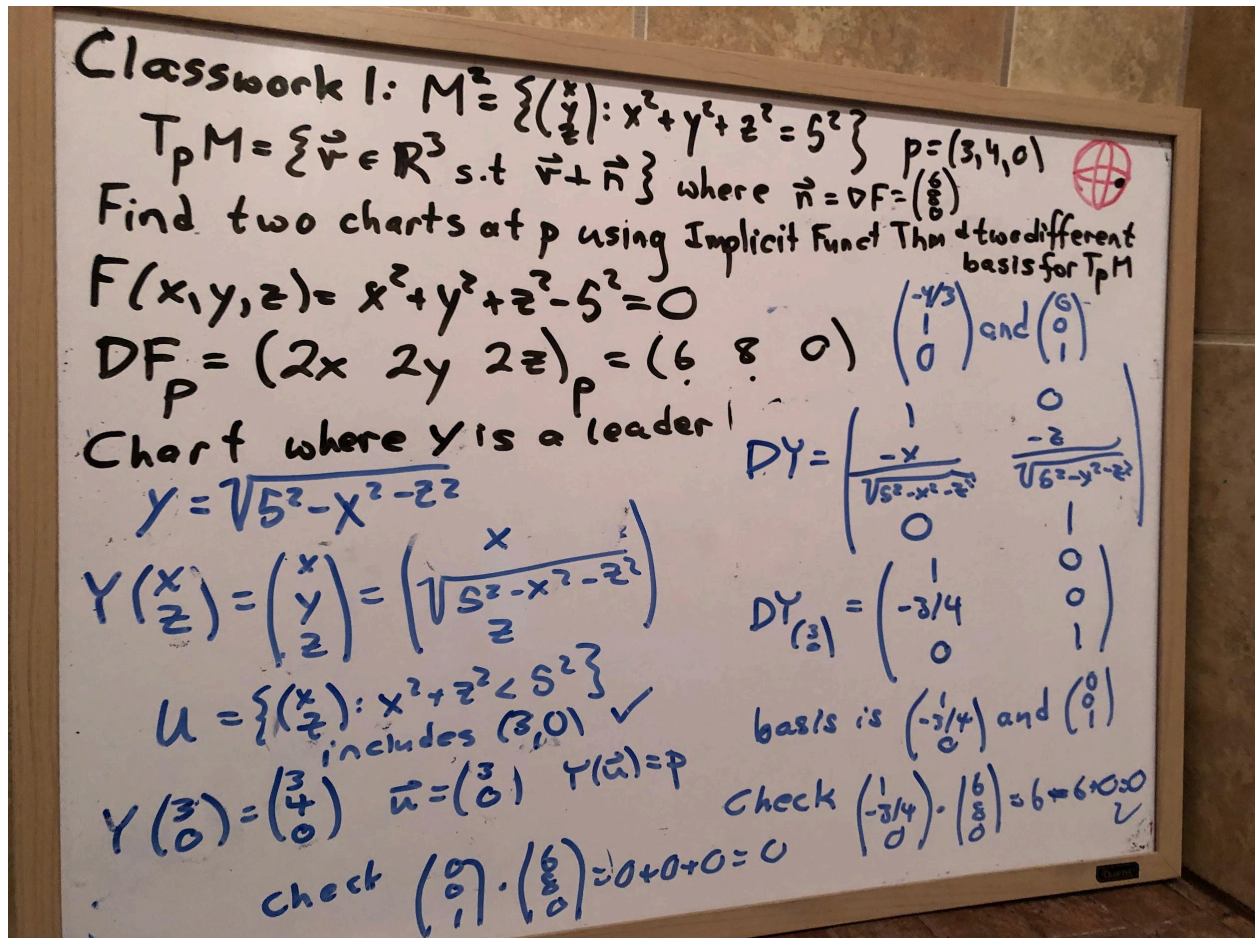 Classwork 1: M² = {(x y z): x² + y² + z² = 5²} p = (3, 4, 0)
TₚM = {v⃗ ∈ ℝ³ s.t v⃗ ⊥ n⃗} where n⃗ = ∇F = (6 8 0)
Find two charts at p using Implicit Funct Thm & two different
basis for TₚM
F(x, y, z) = x² + y² + z² - 5² = 0
DFₚ = (2x 2y 2z)ₚ = (6 8 0)
Chart where y is a leader
y = √(5² - x² - z²)
Y(x z) = (x y z) = (x √(5² - x² - z²) z)
U = {(x z): x² + z² < 5²}
includes (3, 0) ✓
Y(3 0) = (3 4 0) u⃗ = (3 0) Y(u⃗) = p
check (0 0 1) · (6 8 0) = 0 + 0 + 0 = 0
(-4/3 1 0) and (0 0 1)
DY = (1 0
-x/√(5² - x² - z²) -z/√(5² - y² - z²)
0 1)
DY(3 0) = (1 0
-3/4 0
0 1)
basis is (1 -3/4 0) and (0 0 1)
Check (1 -3/4 0) · (6 8 0) = 6 - 6 + 0 = 0 ✓